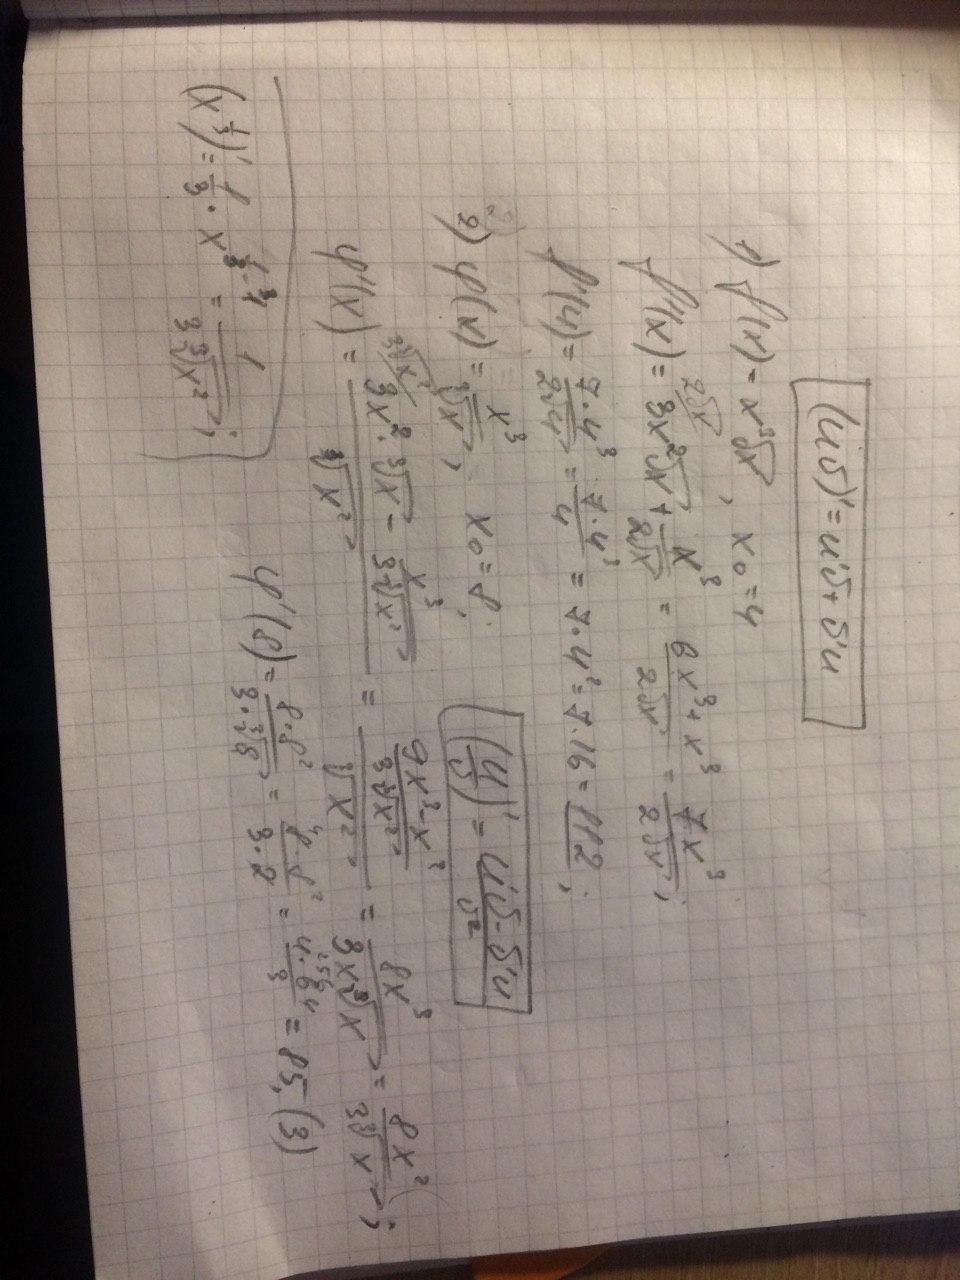 (uv)' = u'v + v'u
1) f(x) = x³√x , x₀ = 4
f'(x) = 3x²√x + x³/2√x = 6x³ + x³/2√x = 7x³/2√x ;
f'(4) = 7·4³/2√4 = 7·4³/4 = 7·4² = 7·16 = 112 ;
(u/v)' = u'v - v'u/v²
2) φ(x) = x³/³√x , x₀ = 8 .
φ'(x) = 3x²·³√x - x³/3³√x²/³√x² = 9x³ - x³/3³√x²/³√x² = 8x³/3x³√x = 8x²/3³√x ;
φ'(8) = 8·8²/3·³√8 = 8·8²/3·2 = 4·64/3 = 85,(3)
(x^⅓)' = 1/3 · x^(1/3 - 3/3) = 1/3³√x² ;